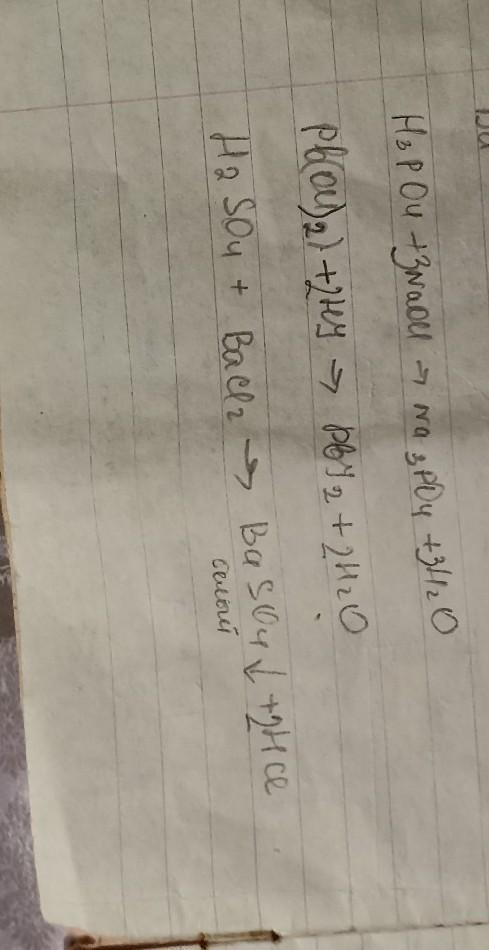 H₃PO₄ + 3NaOH → Na₃PO₄ + 3H₂O
Pb(OH)₂) + 2HJ → PbJ₂ + 2H₂O
H₂SO₄ + BaCl₂ → BaSO₄↓ + 2HCl
белый